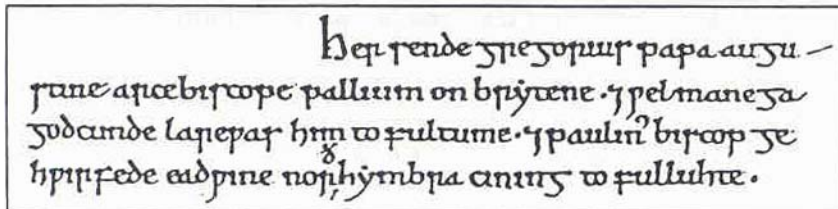 Her sende gregorius papa augu–
stine arcebiscope pallium on brẏtene · ⁊ ƿelmanega
godcunde lareƿas him to fultume · ⁊ paulinꝰ biscop ge
hƿirfede eadƿine norðhẏmbra cining to fulluhte ·